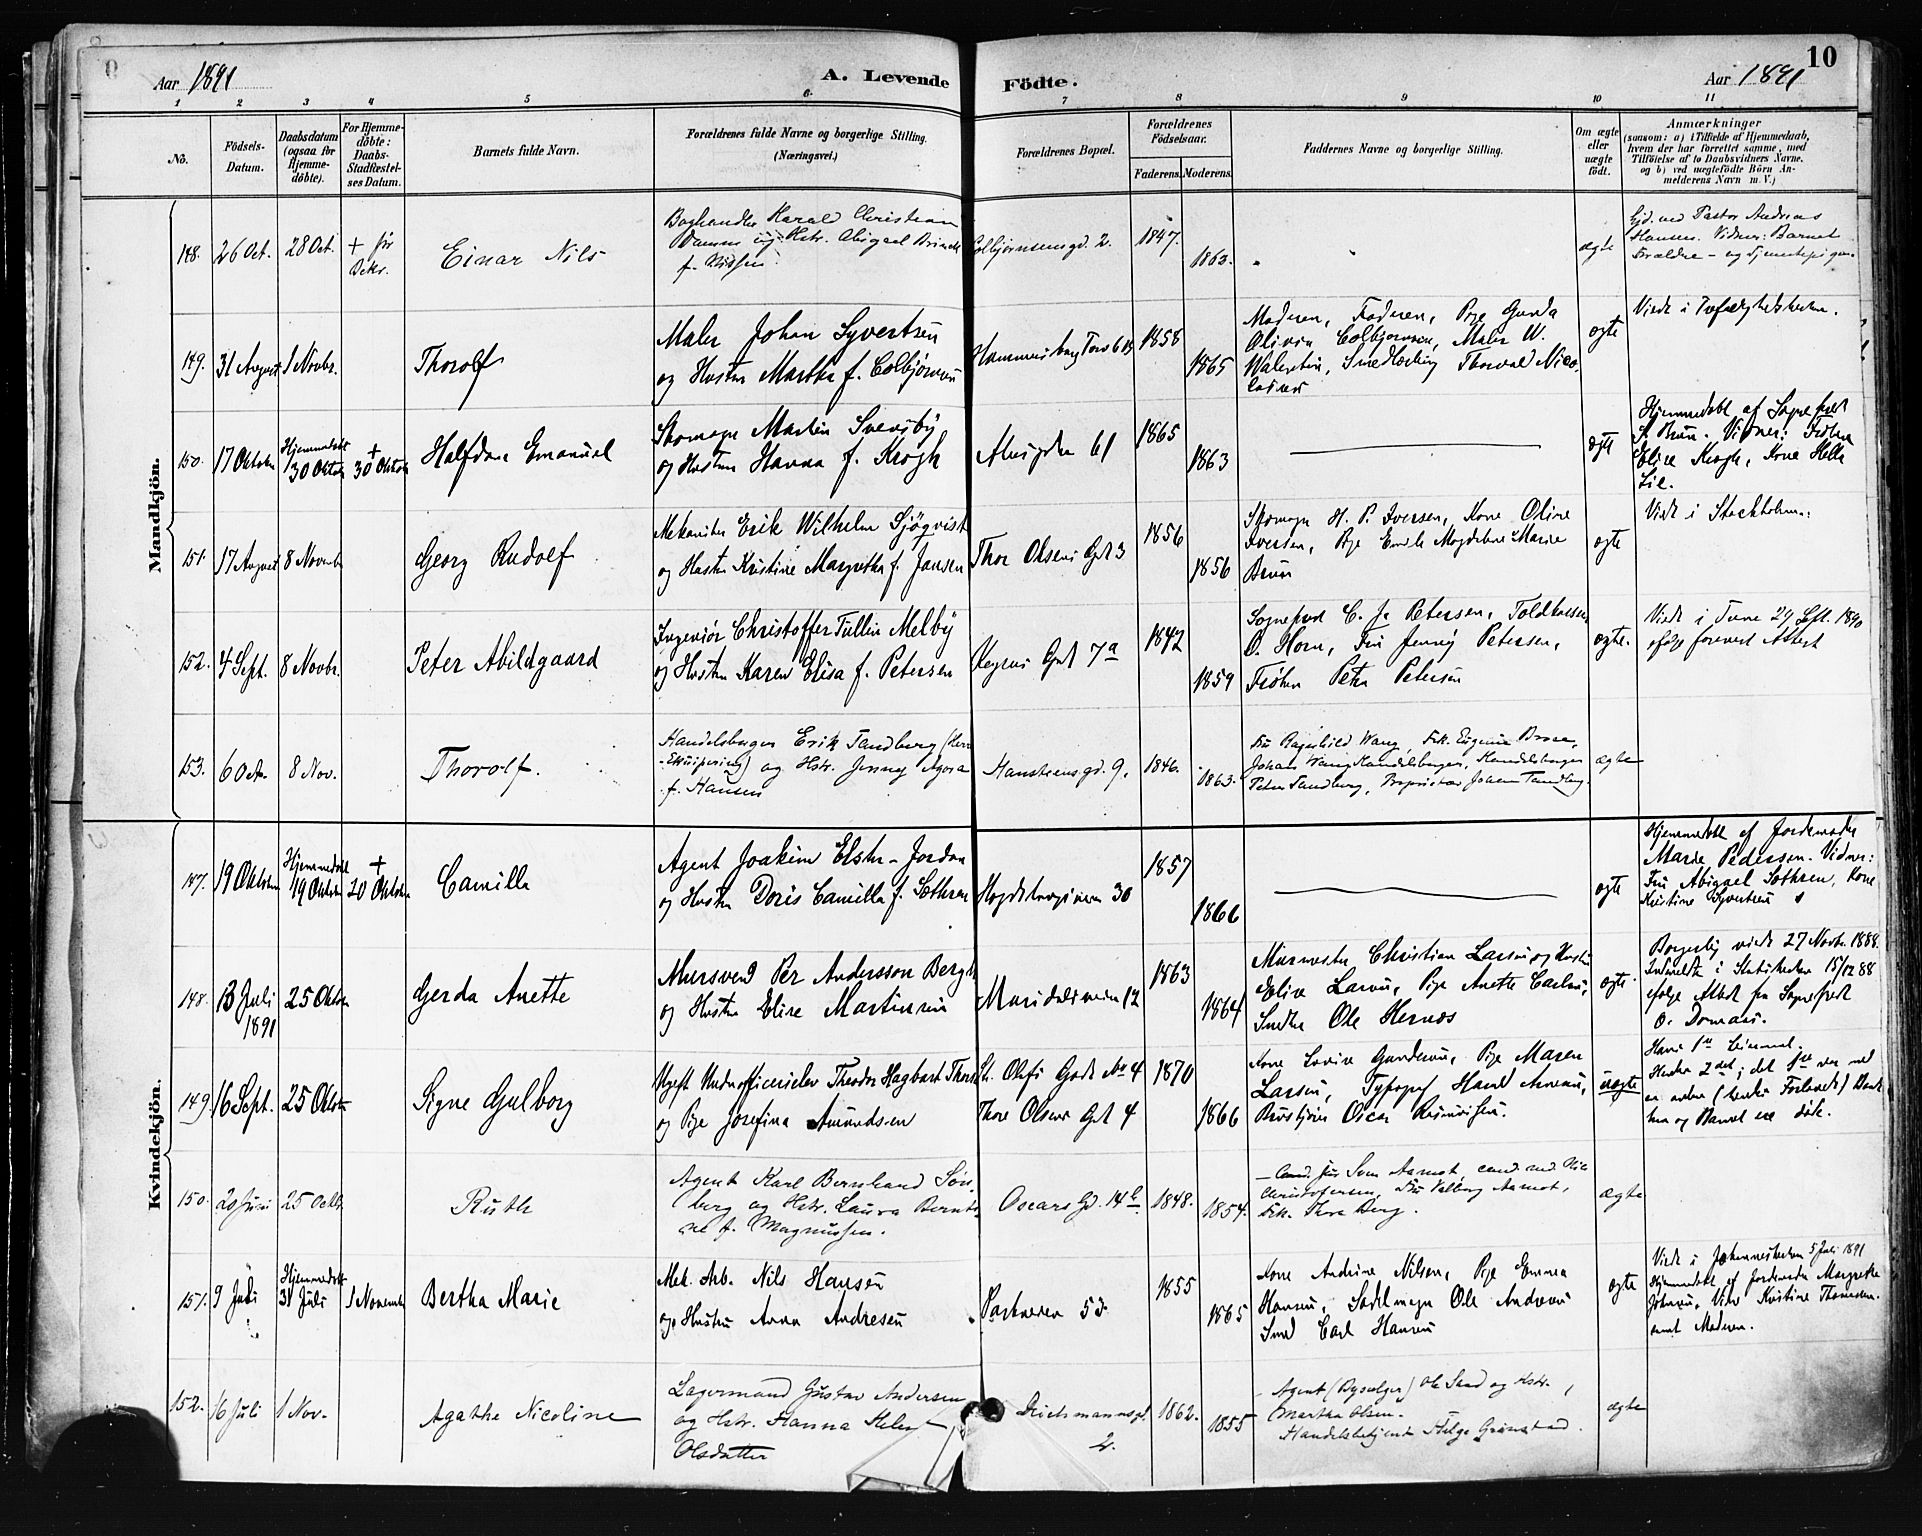 Aar 1891
A. Levende
Födte.
Aar 1891
10
1 2 3 4 5 6 7 8 9 10 11
No.
Födsels-
Datum.
Daabsdatum
(ogsaa for
Hjemme-
döbte).
For Hjemme-
döbte:
Daabs-
Stadfæstel-
ses Datum.
Barnets fulde Navn.
Forældrenes fulde Navne og borgerlige Stilling.
(Næringsvei.)
Forældrenes Bopæl.
Forældrenes
Födselsaar.
Faderens. Moderens.
Faddernes Navne og borgerlige Stilling.
Om ægte
eller
uægte
födt.
Anmærkninger
(saasom: a) i Tilfælde af Hjemmedaab,
hvem der har forrettet samme, med
Tilföielse af to Daabsvidners Navne,
og b) ved uægtefödte Börn An-
melderens Navn m. V.)
Mandkjön.
148. 26 Oct. 28 Oct. + før
Einar Nils
Boghandler Harald Christian
Damm og Hstr. Abigael
f. Nissen
Colbjørnsensgd. 2. 1847. 1863.
ægte
Hjd. ved Pastor Andreas
Hansen. Vidner: Barnets
Forældre - og Tjenestepigen.
149. 31 August 1 Novbr.
Thorolf
Maler Johan Syvertsen
og Hustru Martha f. Colbjørnsen
Hammersborg Torv 6 1858 1865
Moderen, Faderen, Pige Gunda
Olivia Colbjørnsen, Maler W.
Walentin, Smedlærling Thorvald Nico-
laisen
ægte
Viede i Trefoldighedskirken.
150. 17 Oktober Hjemmedøbt 30 Oktober + 30 Oktober
Halfdan Emanuel
Skomager Martin Svensby
og Hustru Hanna f. Krogh
Akersgaden 61 1865 1863
ægte
Hjemmedøbt af Sogneprest
Bruun. Vidner: Frøken
Elise Krogh, Kone Helle
Lie.
151. 17 August 8 Novembr
Georg Rudolf
Mekaniker Erik Wilhelm Sjøqvist
og Hustru Kristine Margretha f. Jansen
Thor Olsens Gd 3 1856 1856
Skomager H. P. Iversen, Kone Oline
Iversen, Pige Emilie Magdalene Marie
Bruun
ægte
Viede i Stockholm.
152. 4 Sept. 8 Novbr.
Peter Abildgaard
Ingeniør Christoffer Tullin Melby
og Hustru Karen Elisa f. Petersen
Keysers Gd 7a 1842 1859
Sogneprest C. J. Petersen, Toldkasserer
O. Horn, Fru Jenny Petersen,
Frøken Petra Petersen
ægte.
Viede i Tune 29 Sept. 1890
ifølge forevist Attest
153. 6 Oct. 8 Nov.
Thorolf.
Handelsborger Erik Tandberg (Herre
-Ekvipering) og Hstr. Jenny
f. Hansen
Hansteensgd. 9. 1846. 1863.
Fru Ragnhild Wang, Frk. Eugenie
Johan Wang Handelsborger, Handelsborger
Peter Tandberg, Proprietær Johan Tandberg.
ægte
Kvindekjön.
147. 19 Oktober Hjemmedøbt 19 Oktober + 20 Oktober
Camilla
Agent Joakim Elster-Jordan
og Hustru Doris Camilla f. Sæthren
30 1857 1866
ægte
Hjemmedøbt af Jordemoder
Marie Pedersen. Vidner:
Fru Abigael Sæthren, Kone
Kristine Syvertsen
148. 13 Juli 1891 25 Oktober
Gerda Anette
Mursvend Per Andersson Berg
og Hustru Elise Martinsen
Maridalsveien 12 1863 1864
Murmester Christian Larsen og Hustru
Elise Larsen, Pige Anette Carlsen,
Snedker Ole Hernæs
ægte
Borgerlig viede 27 Novbr. 1888.
Indmeldte i Statskirken 15/12 88
ifølge Attest fra Sogneprest
149 16 Sept. 25 Oktober
Signe Gulborg
Ugift Underofficerselev Theodor Hagbart
og Pige Josefina Amundsen
St. Olafs Gade No 4
Thor Olsens Gd 4 1870 1866
Kone Lovise Gundersen, Pige Maren
Larsen, Typograf Harald Arnesen,
Oscar Rasmussen.
uægte
Hans 1ste Leiermaal.
Hendes 2det; det 1ste var med
en anden (hendes Forlovede) Denne
og Barnet ere døde.
150. 20 Juni 25 Octbr.
Ruth
Agent Karl Bernhard Søn-
berg og Hstr. Laura Bernt-
ne f. Magnussen.
Oscars Gd. 14b. 1848. 1854.
Cand. jur Sven Aamot, cand. med Nils
Christofersen, Fru Valborg Aamot,
Frk. Thora Berg.
ægte
151. 9 Juli Hjemmedøbt 31 Juli 1 November
Bertha Marie
Mek. Arb. Nils Hansen
og Hustru Anna Andresen
Parkveien 53. 1855 1865
Kone Andrine Nilsen, Pige Emma
Hansen, Sadelmager Ole Andersen
Smed Carl Hansen
ægte
Viede i Johanneskirken 5 Juli 1891
Hjemmedøbt af Jordemoder Margrethe
Johnsen, Vidner Kristine Thomesen.
samt Moderen.
152. 16 Juli 1 Nov.
Agathe Nicoline
Lagermand Gustav Andersen
og Hstr. Hanna Helene
Olsdatter
Deichmannsgd. 2. 1862. 1855
Agent (Bysælger) Ole Sand og Hstr.,
Martha Olsen.
Handelsbetjent Helge Grønstad.
ægte